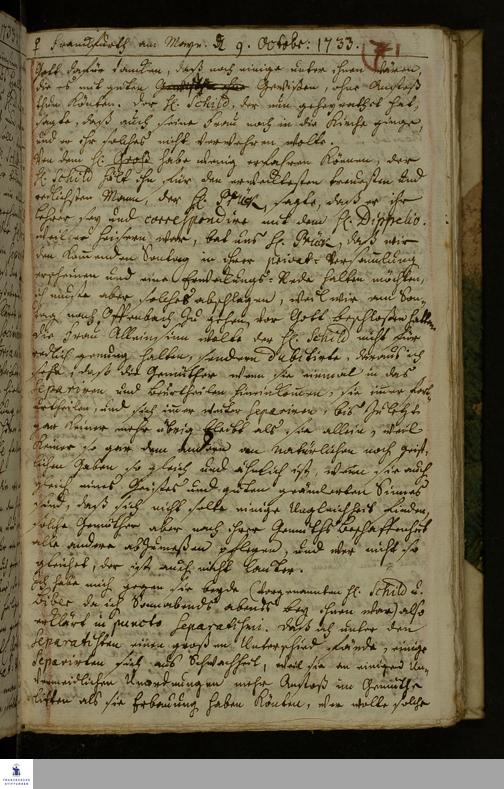 Franckfurth am Mayn. d. 9. Octobr: 1733. 171
Gott dafür dancken, daß noch einige unter ihnen wären,
die es mit guten Gewißen, ohne Anstoß
thun könten. Der H. Schild, der nun geheyrathet hat,
sagte, daß auch seine Frau noch in die Kirche ginge,
und er ihr solches nicht verwehren wolte.
Von dem H. habe wenig erfahren können, der
H. Schild hält ihn für den treuesten und
redlichsten Mann, der H. sagte, daß er ihr
Lehrer sey und correspondire mit dem H. Dippelio.
Weil wir hier wären, bat uns H. daß wir
den kommenden Sontag in ihrer privat-Versammlung
erscheinen und eine Erweckungs-Rede halten möchten,
ich muste aber solches abschlagen, weil wir am Son-
tag nach Offenbach zu gehen, vor Gott beschloßen hatten.
Die Frau wolte der H. Schild nicht für
redlich genung halten, sondern dubitirte, daraus ich
sehe, daß die Gemüther wenn sie einmal in das
Separiren und Beurtheilen hineinkommen, sie immer fort-
urtheilen, und sich immer weiter separiren, bis zuletzt
gar keiner mehr übrig bleibt als sie allein, weil
keiner so gar dem andern an natürlichen noch geist-
lichen Gaben so gleich und ähnlich ist, wenn sie auch
gleich eines Geistes und guten Sinnes
sind, daß sich nicht solte einige Ungleichheit finden,
solche Gemüther aber nach ihrer Gemüths Beschaffenheit
alle andere abzumeßen pflegen, und wer nicht so
gleichet, der ist auch nicht lauter.
Ich habe mich gegen sie beyde vorgenannten H. Schild u.
da ich Sonnabends abends bey ihnen war, also
erklärt in puncto Separatismi. daß ich unter den
Separatisten einen großen Unterschied machte, einige
separirten sich aus Schwachheit, weil sie an einigen Un-
vermeidlichen Unordnungen mehr Anstoß im Gemüthe
litten als sie Erbauung haben könten, wer wolte solche
FRANCKESCHE STIFTUNGEN